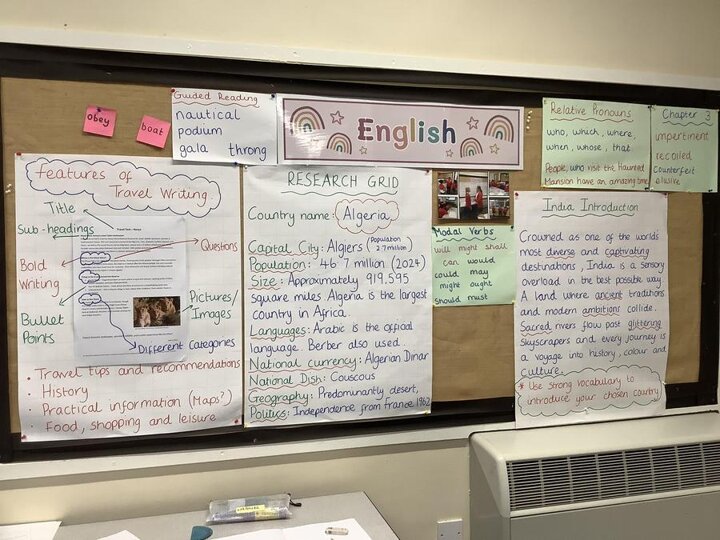 obey
boat
Guided Reading
nautical
podium
gala throng
English
Relative Pronouns
who, which, where,
when, whose, that
People, who visit the Haunted
Mansion have an amazing time
Chapter 3
impertinent
recoiled
counterfeit
elusive
features of
Travel Writing.
Title
Sub-headings
Bold
Writing
Bullet
Points
Questions
Pictures/
Images
Different Categories
• Travel tips and recommendations
• History
• Practical information (Maps?)
• Food, shopping and leisure
RESEARCH GRID
Country name: Algeria
Capital City: Algiers (Population 2.7 million)
Population: 46.7 million (2024)
Size: Approximately 919.595
square miles Algeria is the largest
country in Africa.
Languages: Arabic is the official
language. Berber also used.
National currency: Algerian Dinar
National Dish: Couscous
Geography: Predominantly desert,
Politics: Independence from France 1962
Modal Verbs
will might shall
can would
could may
might ought
should must
India Introduction
Crowned as one of the worlds
most diverse and captivating
destinations, India is a sensory
overload in the best possible way.
A land where ancient traditions
and modern ambitions collide.
Sacred rivers flow past glittering
skyscrapers and every journey is
a voyage into history, colour and
culture.
* Use strong vocabulary to
introduce your chosen country